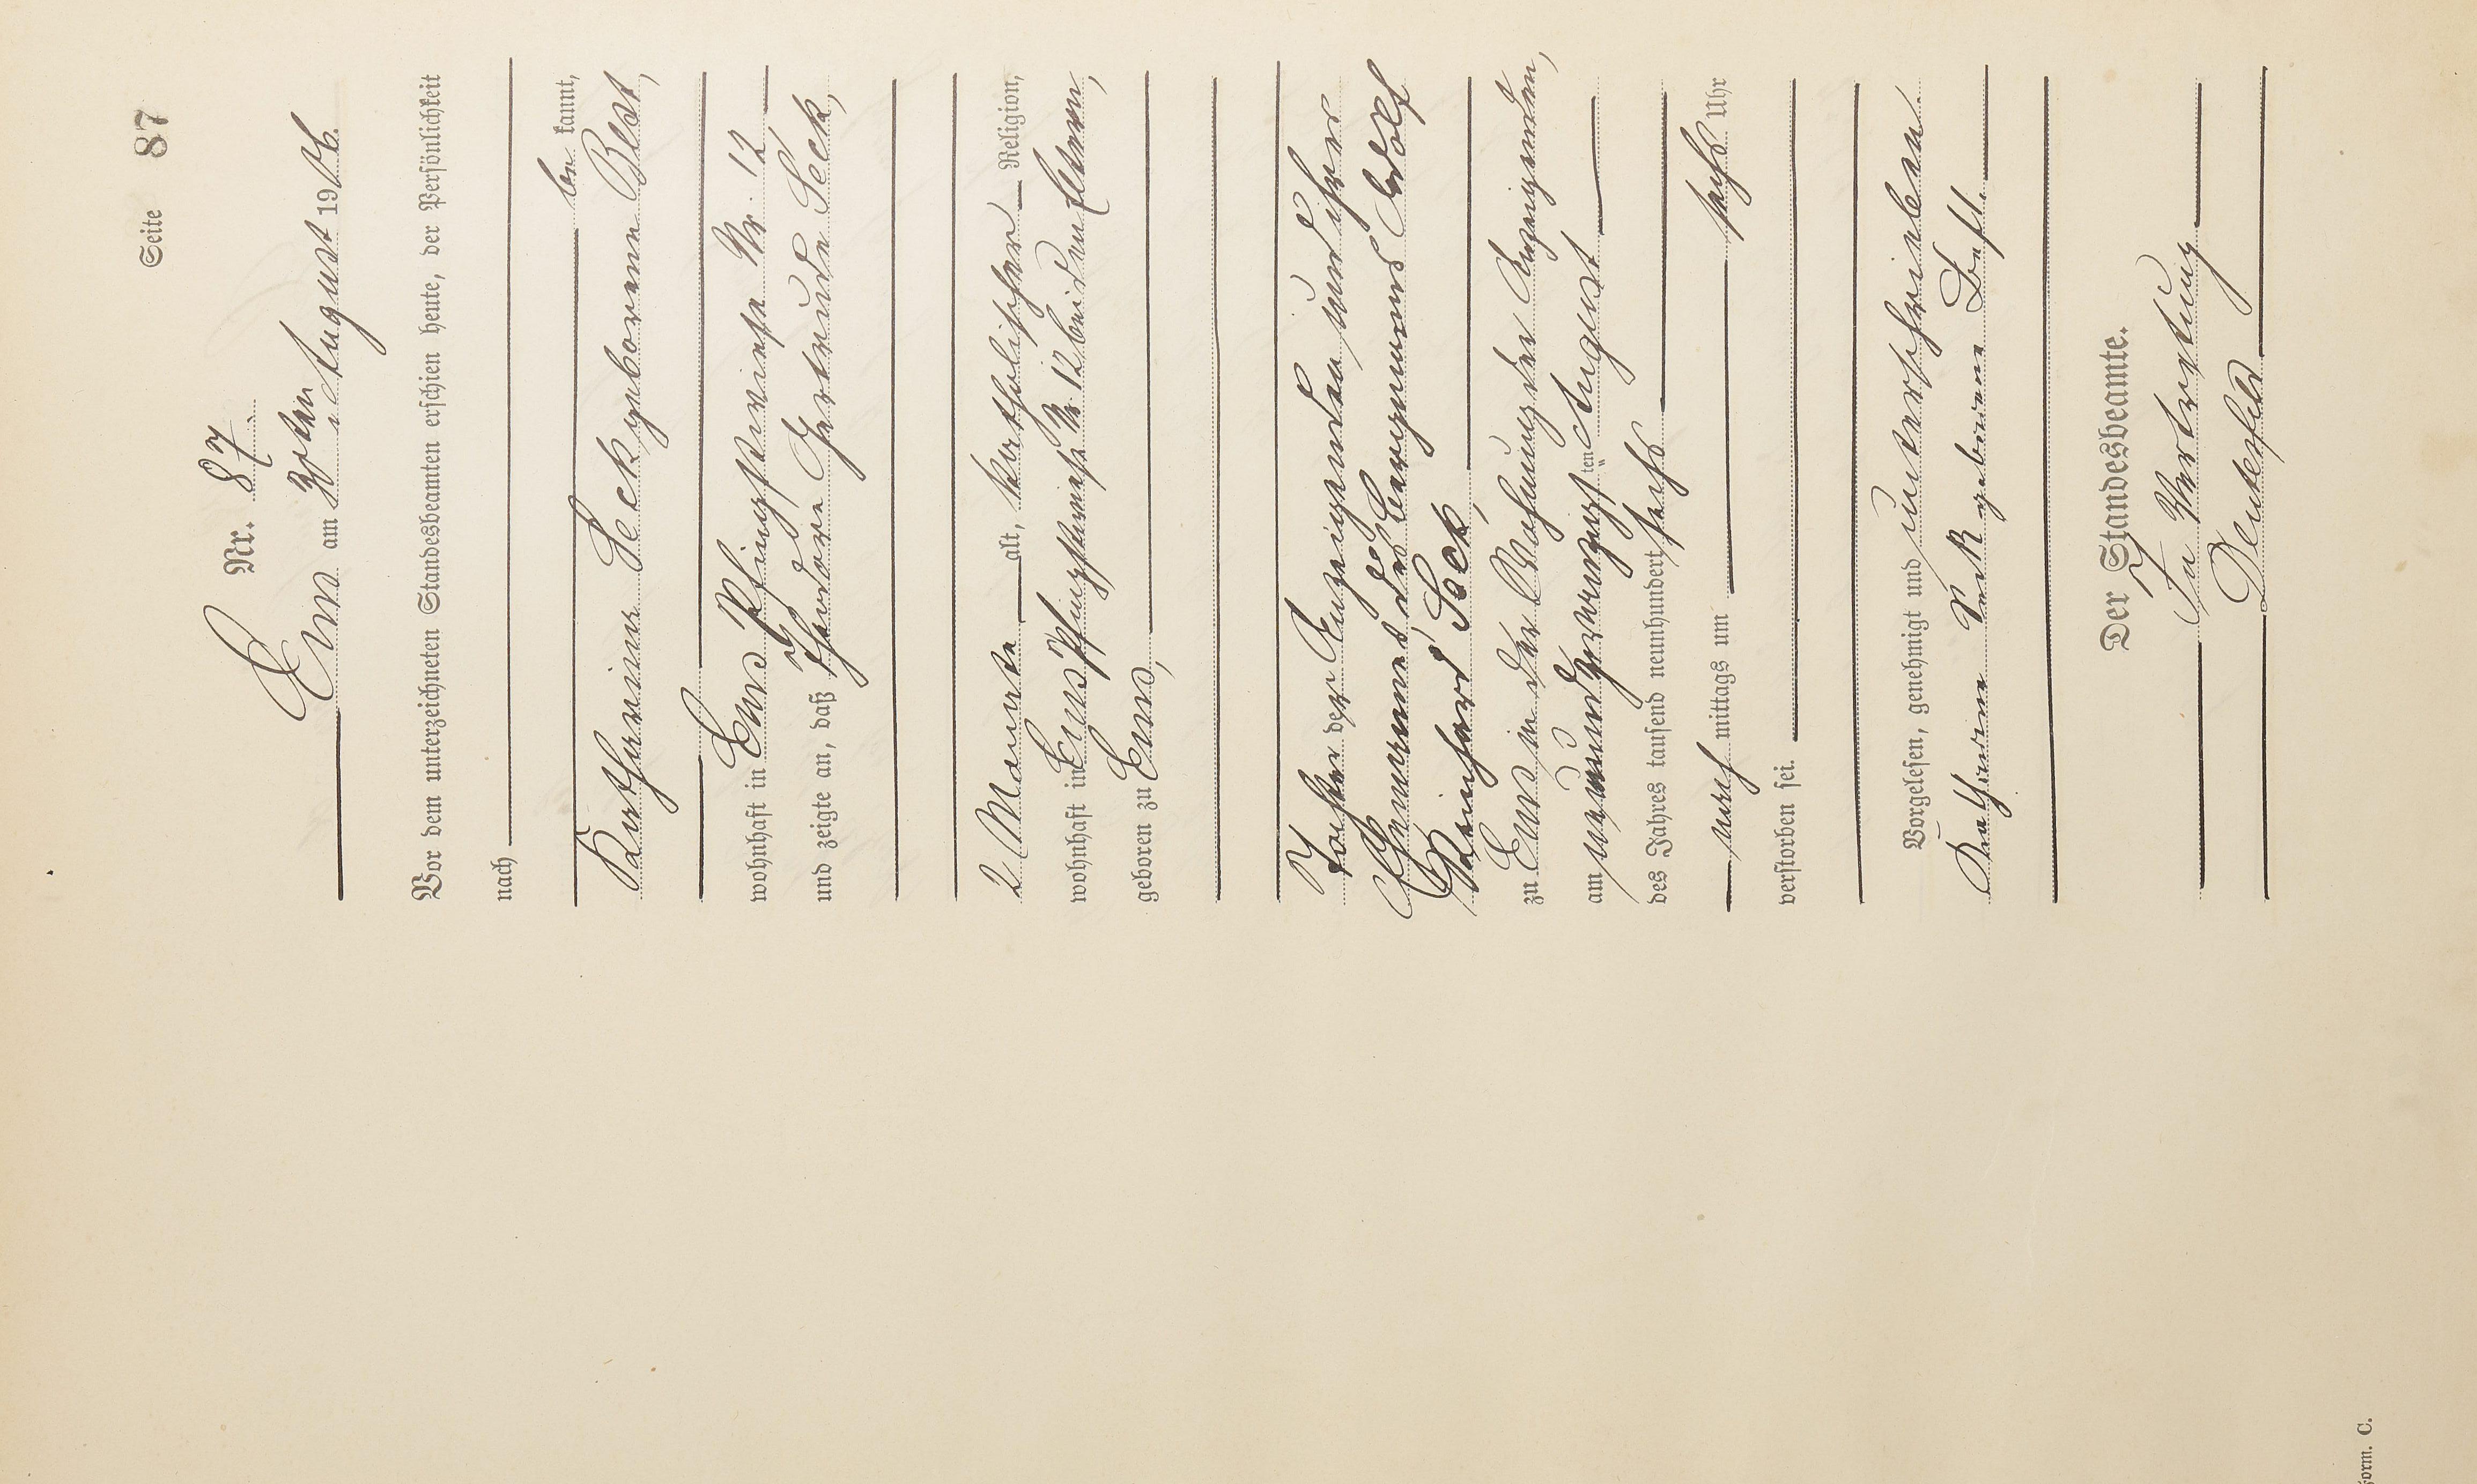 Seite 87
Nr. 87.
Ems am 30ten August 1906.
Vor dem unterzeichneten Standesbeamten erschien heute, der Persönlichkeit
nach
be kannt,
Katharina Seck geborene Best,
wohnhaft in Ems Pfingstwiese Nr. 12
und zeigte an, daß Theodora Gertrude Seck,
2 Monate alt, katholischer Religion,
wohnhaft in Ems Pfingstwiese Nr. 12 bei den Eltern,
geboren zu Ems,
Tochter der Anzeigenden und ihres
Ehemannes des Bergmanns Adolf
Reinhard Seck,
zu Ems in der Wohnung der Anzeigenden,
am neunundzwanzigsten August
des Jahres tausend neunhundert sechs
nach mittags um sechs Uhr
verstorben sei.
Vorgelesen, genehmigt und unterschrieben.
Katharina Seck geborene Best.
Der Standesbeamte.
In Vertretung
Form. C.